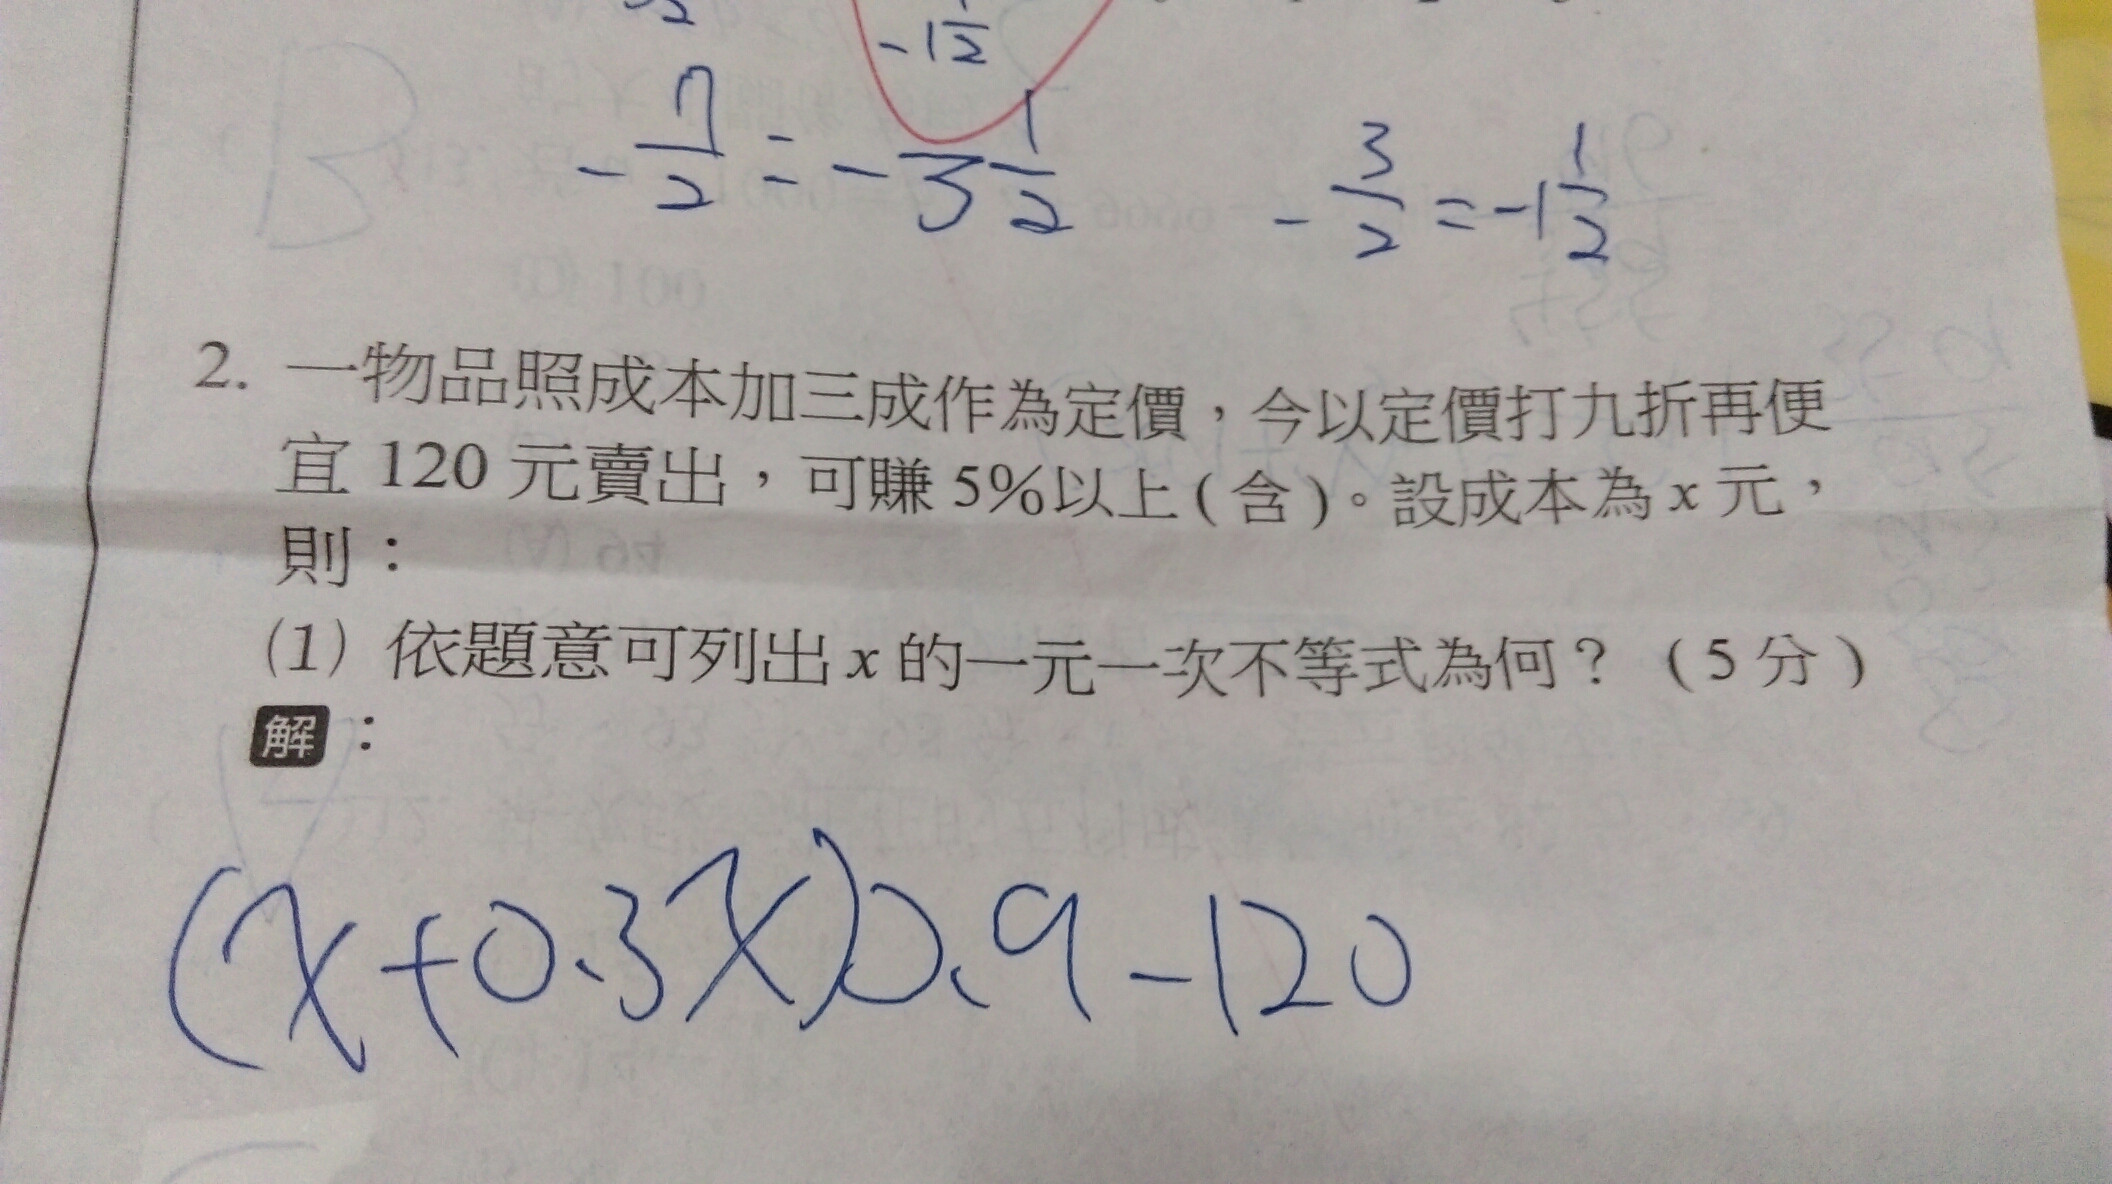 -1 1/2
- 7/2 = - 3 1/2   - 3/2 = -1 1/2
2. 一物品照成本加三成作為定價，今以定價打九折再便
宜 120 元賣出，可賺 5%以上(含)。設成本為 x 元，
則：
(1) 依題意可列出 x 的一元一次不等式為何？（5 分）
解：
(x+0.3x)0.9-120